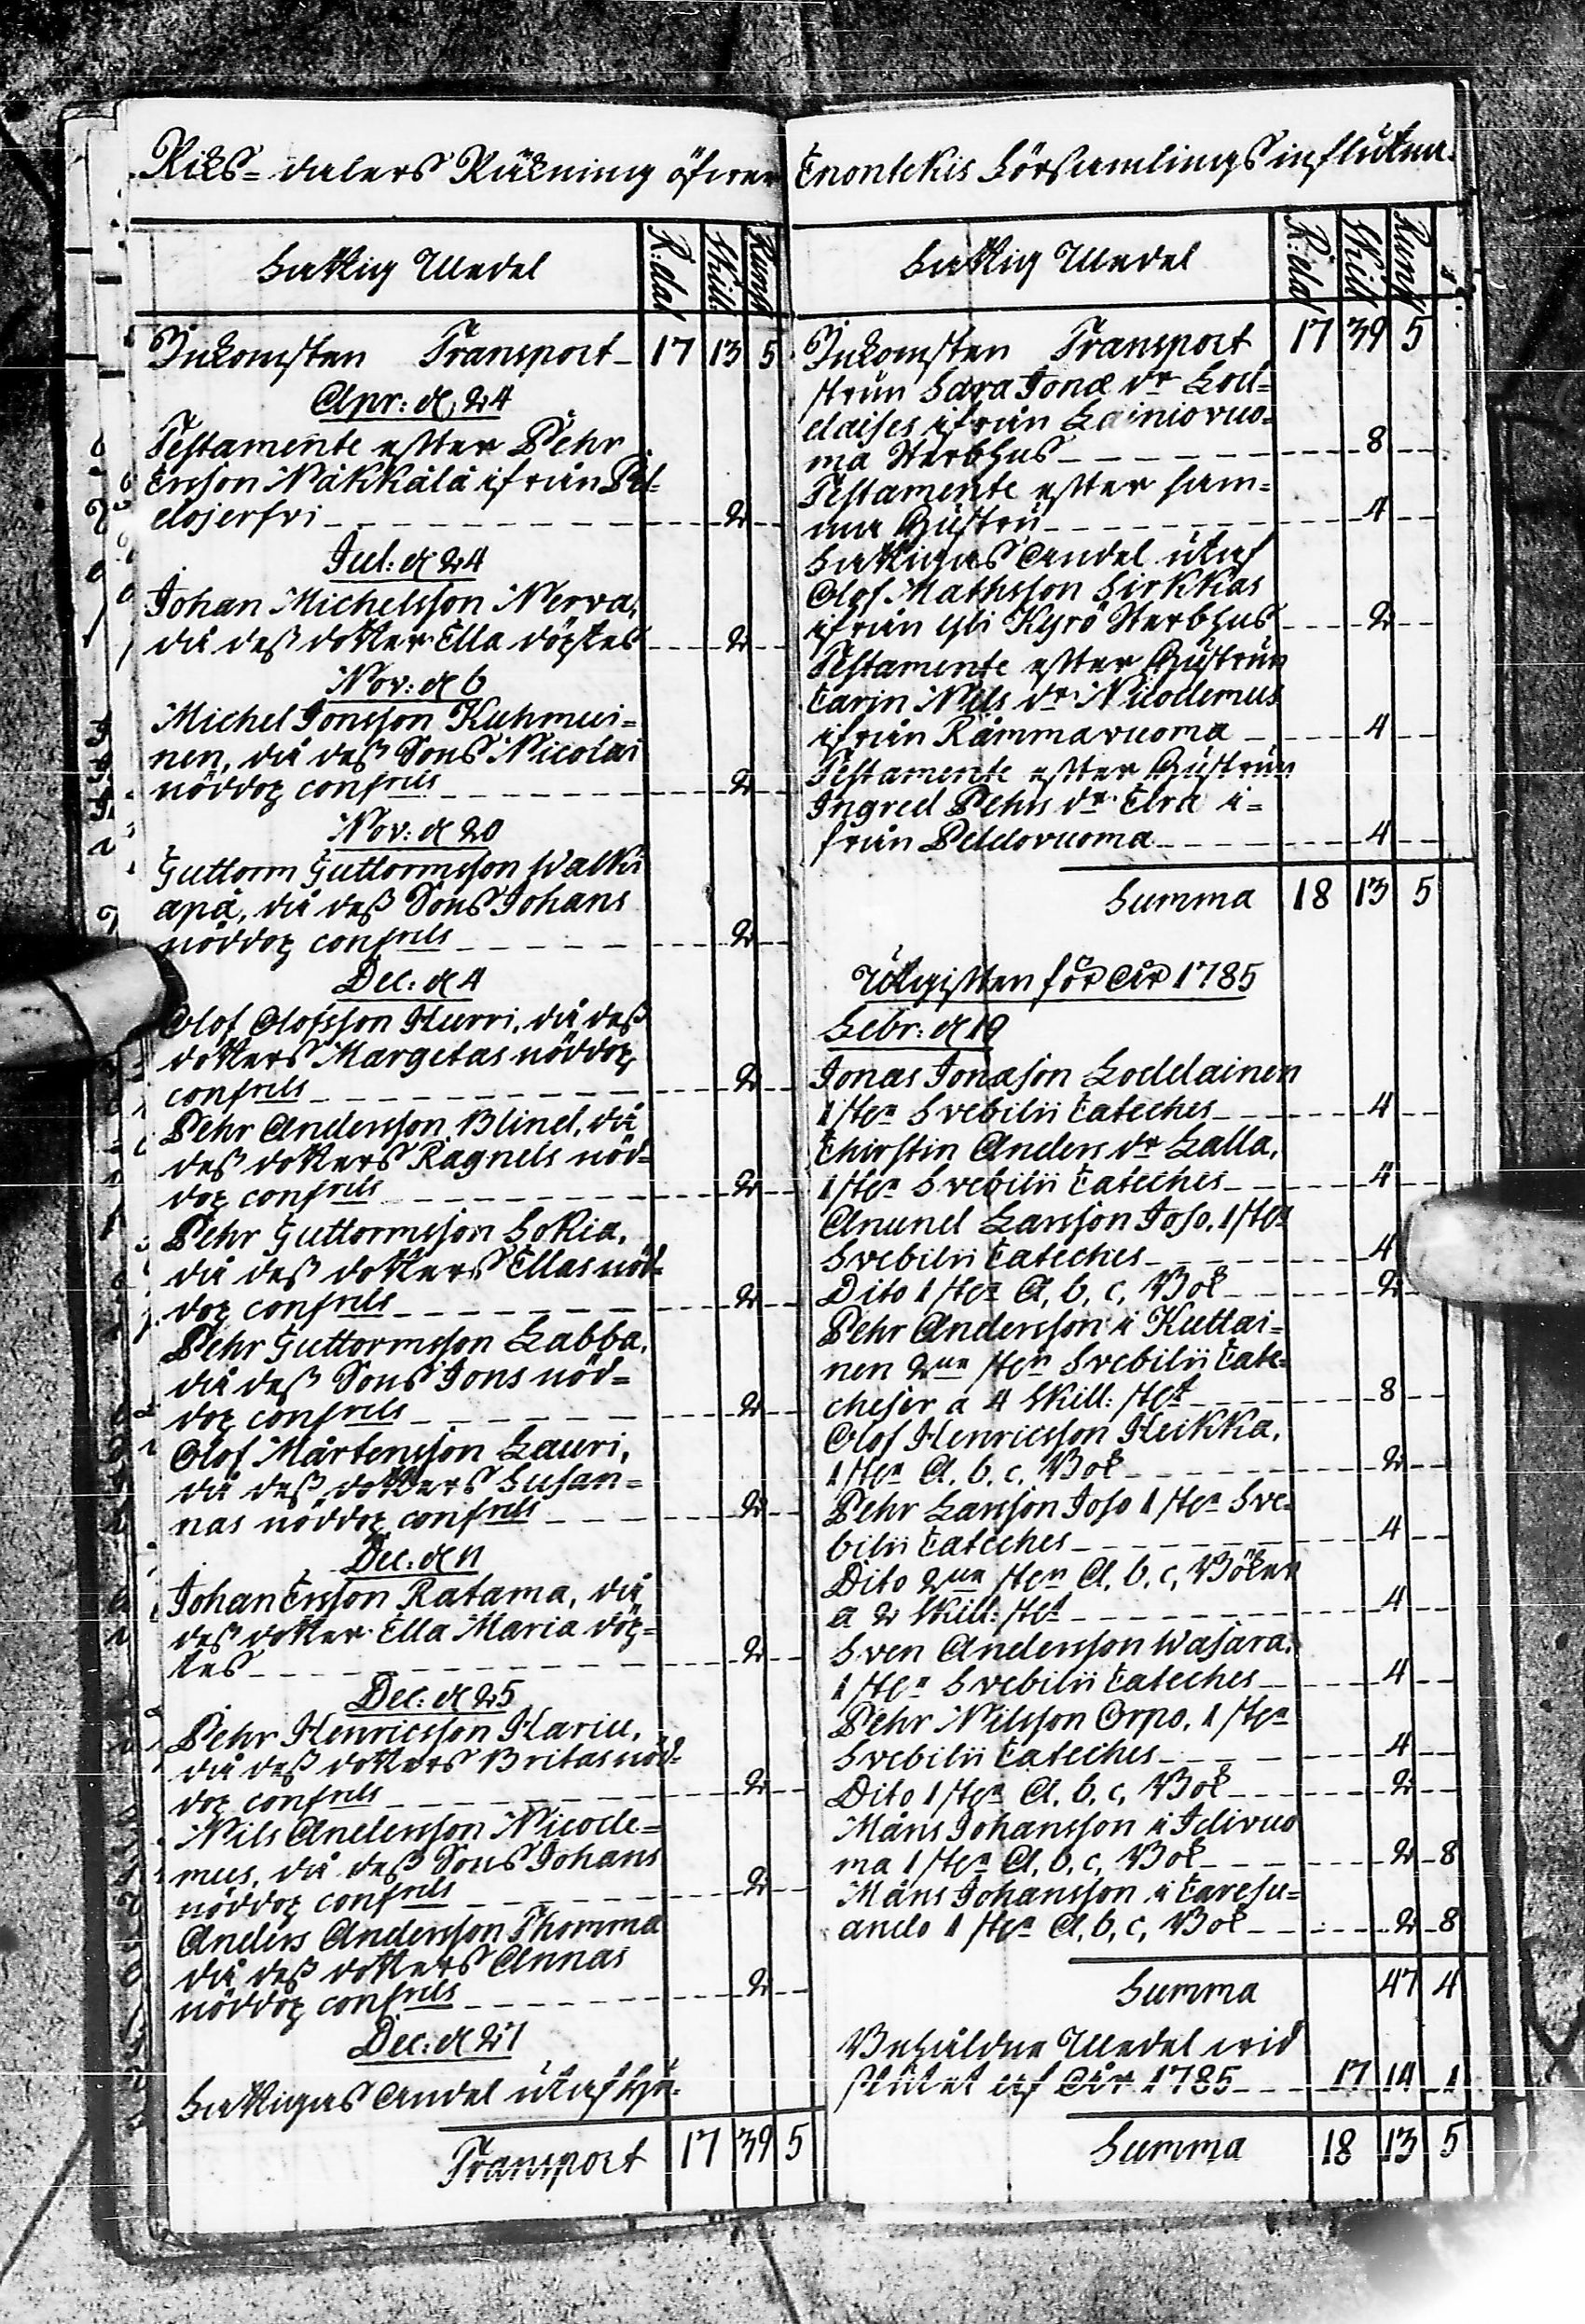 Riks-dalers Räkning öfwer Enontekis Församlings influtna
Fattig Medel R:dal Skill: Runst
Inkomsten Transport 17 13 5
Apr: d. 24
Testamente efter Pehr
Ersson Näkkälä ifrån Pel-
dojerfvi 2
Jul: d 24
Johan Michelsson Nerva,
då dess dotter Ella döptes 2
Nov: d 6
Michel Jonsson Kuhmui-
nen, då dess Sons Nicolai
nöddop confirmerades 2
Nov: d 20
Guttorm Guttormsson Walki
apä, då dess Sons Johans
nöddop conf:rds 2
Dec: d 4
Olof Olofsson Hurri, då dess
dotters Margetas nöddop
conf:rds 2
Pehr Andersson Blind, då
dess dotters Ragnels nöd-
dop conf:rds 2
Pehr Guttormsson Sokia,
då dess dotters Ellas nöd-
dop conf:rds 2
Pehr Guttormsson Labba,
då dess Sons Jons nöd-
dop conf:rds 2
Olof Mårtensson Lauri,
då dess dotters Susan-
nas nöddop conf:rds 2
Dec: d 11
Johan Ersson Ratama, då
dess dotter Ella Maria döp-
tes 2
Dec: d 25
Pehr Henricsson Hariu,
då dess dotters Britas nöd-
dop conf:rds 2
Nils Andersson Nicode-
mus, då dess Sons Johans
nöddop conf:rds 2
Anders Andersson Thomma
då dess dotters Annas
nöddop conf:rds 2
Dec: d 27
Fattigas Andel utaf Hu-
Transport 17 39 5
Fattig Medel R:dal Skill Runst
Inkomsten Transport 17 39 5
strun Sara Jonæ dr Lod-
daises ifrån Lainiovuo-
ma Sterbhus 8
Testamente efter sam-
ma Hustru 4
Fattigas Andel utaf
Olof Mathsson Sirkkas
ifrån Yli Kyrö Sterbhus 2
Testamente efter Hustrun
Carin Nils dr Nicodemus
ifrån Råmmavuoma 4
Testamente efter Hustrun
Ingred Pehrs dr Elra i-
från Peldovuoma 4
Summa 18 13 5
Utgiften för År 1785
Febr: d 19
Jonas Jonæson Loddainen
1 st:n Svebilii Cateches 4
Chirstin Anders dr Lalla,
1 st:n Svebilii Cateches 4
Anund Larsson Joso, 1 st:n
Svebilii Cateches 4
Dito 1 st:n A, b, c, Bok 2
Pehr Andersson i Kuttai-
nen 2ne st:n Svebilii Cate-
cheser a 4 Skill: st:t 8
Olof Henricsson Heikka,
1 st:n A. b. c. Bok 2
Pehr Larsson Joso 1 st:n Sve-
bilii Cateches 4
Dito 2ne st:n A. b. c, Böker
a 2 Skill: st:t 4
Sven Andersson Wasara,
1 st:n Svebilii Cateches 4
Pehr Nilsson Orpo, 1 st:n
Svebilii Cateches 4
Dito 1 st:n A. b. c, Bok 2
Måns Johansson i Idivuo
ma 1 st:n A, b, c, Bok 2 8
Måns Johansson i Caresu-
ando 1 st:n A, b, c, Bok 2 8
Summa 47 4
Behåldne Medel wid
slutet af År 1785 17 14 1
Summa 18 13 5